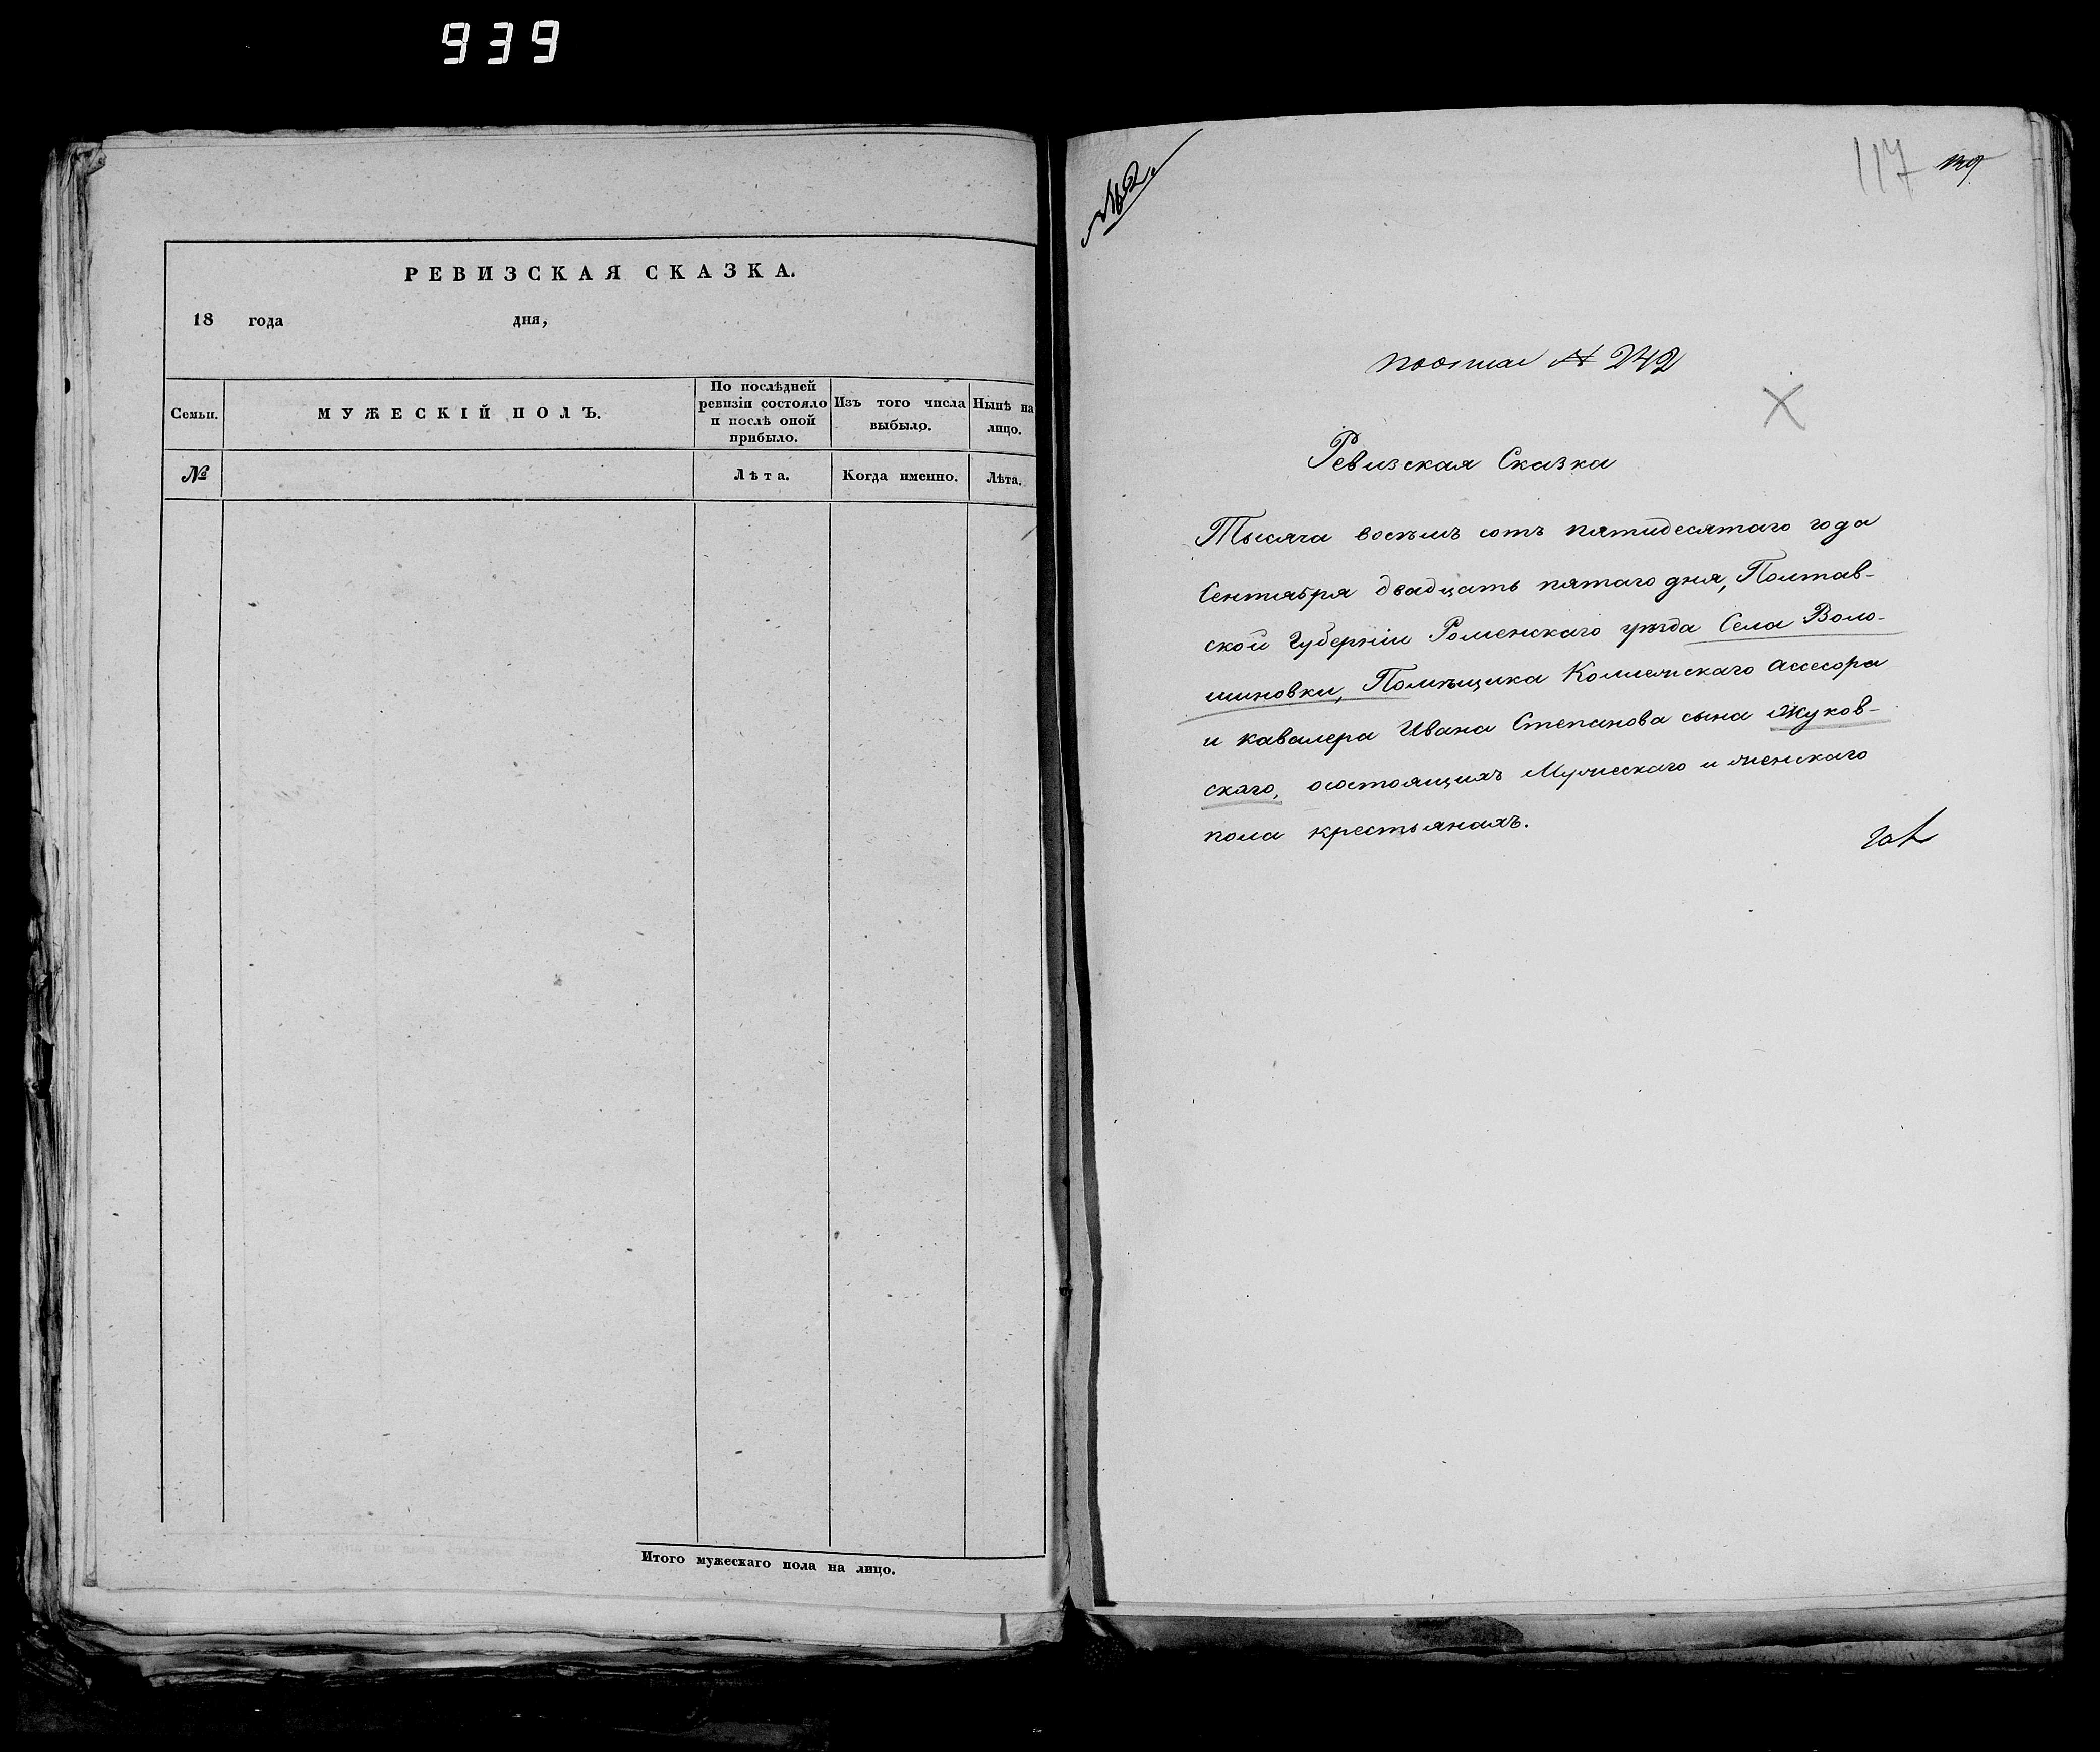 939
РЕВИЗСКАЯ СКАЗКА.
18 года дня,
Семьи.
МУЖЕСКІЙ ПОЛЪ.
По послѣдней
ревизіи состояло
и послѣ оной
прибыло.
Изъ того числа
выбыло.
Нынѣ на
лицо.
№
Лѣта.
Когда именно.
Лѣта.
Итого мужескаго пола на лицо.
№2.
117
№ 242
Ревизская Сказка
Тысяча восемъ сотъ пятидесятаго года
Сентября двадцать пятаго дня, Полтав-
ской Губерніи Роменскаго уѣзда Села Воло-
шиновки, Помѣщика Коллежскаго Ассесора
и кавалера Ивана Степанова сына Жуков-
скаго, осостоящихъ Мужескаго и женскаго
пола крестьянахъ.